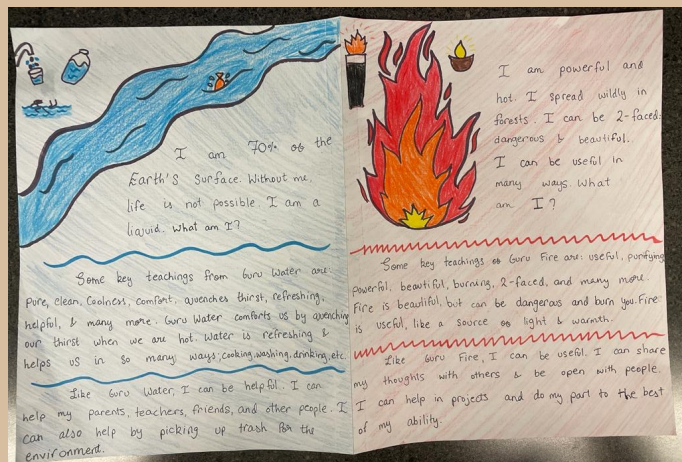 I am 70% of the
Earth's Surface. Without me,
life is not possible. I am a
liquid. What am I?
Some key teachings from Guru Water are:
Pure, clean, Coolness, comfort, quenches thirst, refreshing,
helpful, & many more. Guru Water comforts us by quenching
our thirst when we are hot. Water is refreshing &
helps us in so many ways; cooking, washing, drinking, etc.
Like Guru Water, I can be helpful. I can
help my parents, teachers, friends, and other people. I
can also help by picking up trash for the
environment.
I am powerful and
hot. I spread wildly in
forests. I can be 2-faced:
dangerous & beautiful.
I can be useful in
many ways. What
am I?
Some key teachings of Guru Fire are: useful, purifying
powerful, beautiful, burning, 2-faced, and many more.
Fire is beautiful, but can be dangerous and burn you. Fire
is useful, like a source of light & warmth.
Like Guru Fire, I can be useful. I can share
my thoughts with others & be open with people.
I can help in projects and do my part to the best
of my ability.